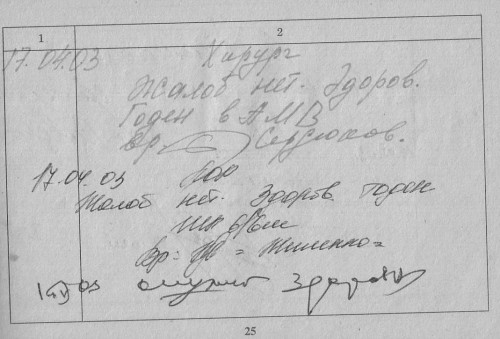 1 2
17.04.03 Хирург
Жалоб нет. Здоров.
Годен в АМВ
Вр. Сердюков.
17.04.03 Лор
Жалоб нет. Здоров годен
шп 6/6м
Вр =
03 окулист Здоров
25